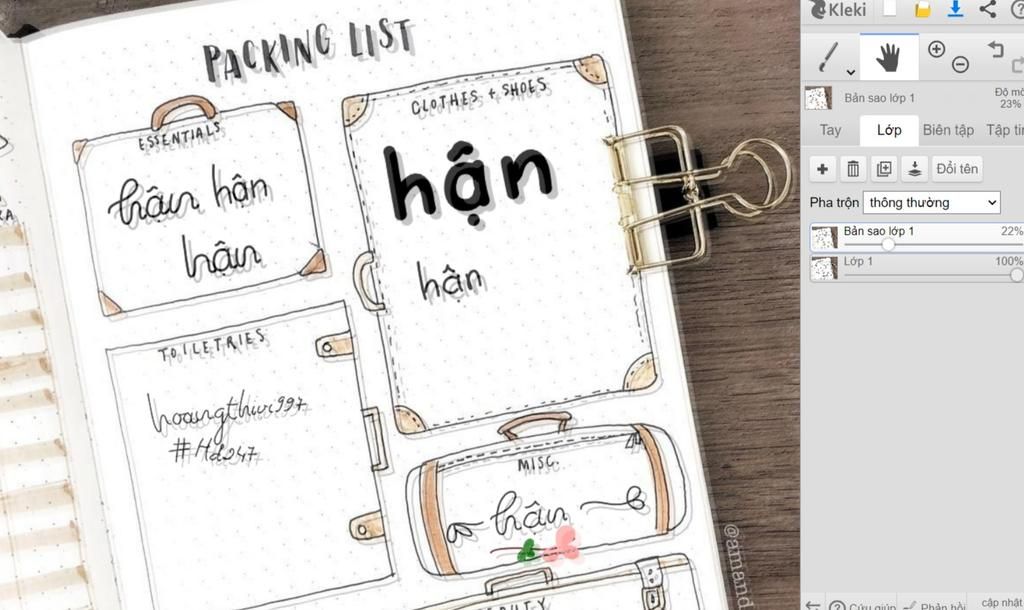 PACKING LIST
ESSENTIALS
hận hận
hận
CLOTHES + SHOES
hận
hận
TOILETRIES
#Hd247
MISC.
hận
Kleki
Bản sao lớp 1
23%
Tay
Lớp
Biên tập
Đổi tên
Pha trộn
thông thường
Bản sao lớp 1
22%
Lớp 1
100%
Cứu giúp
Phản hồi
cập nhật